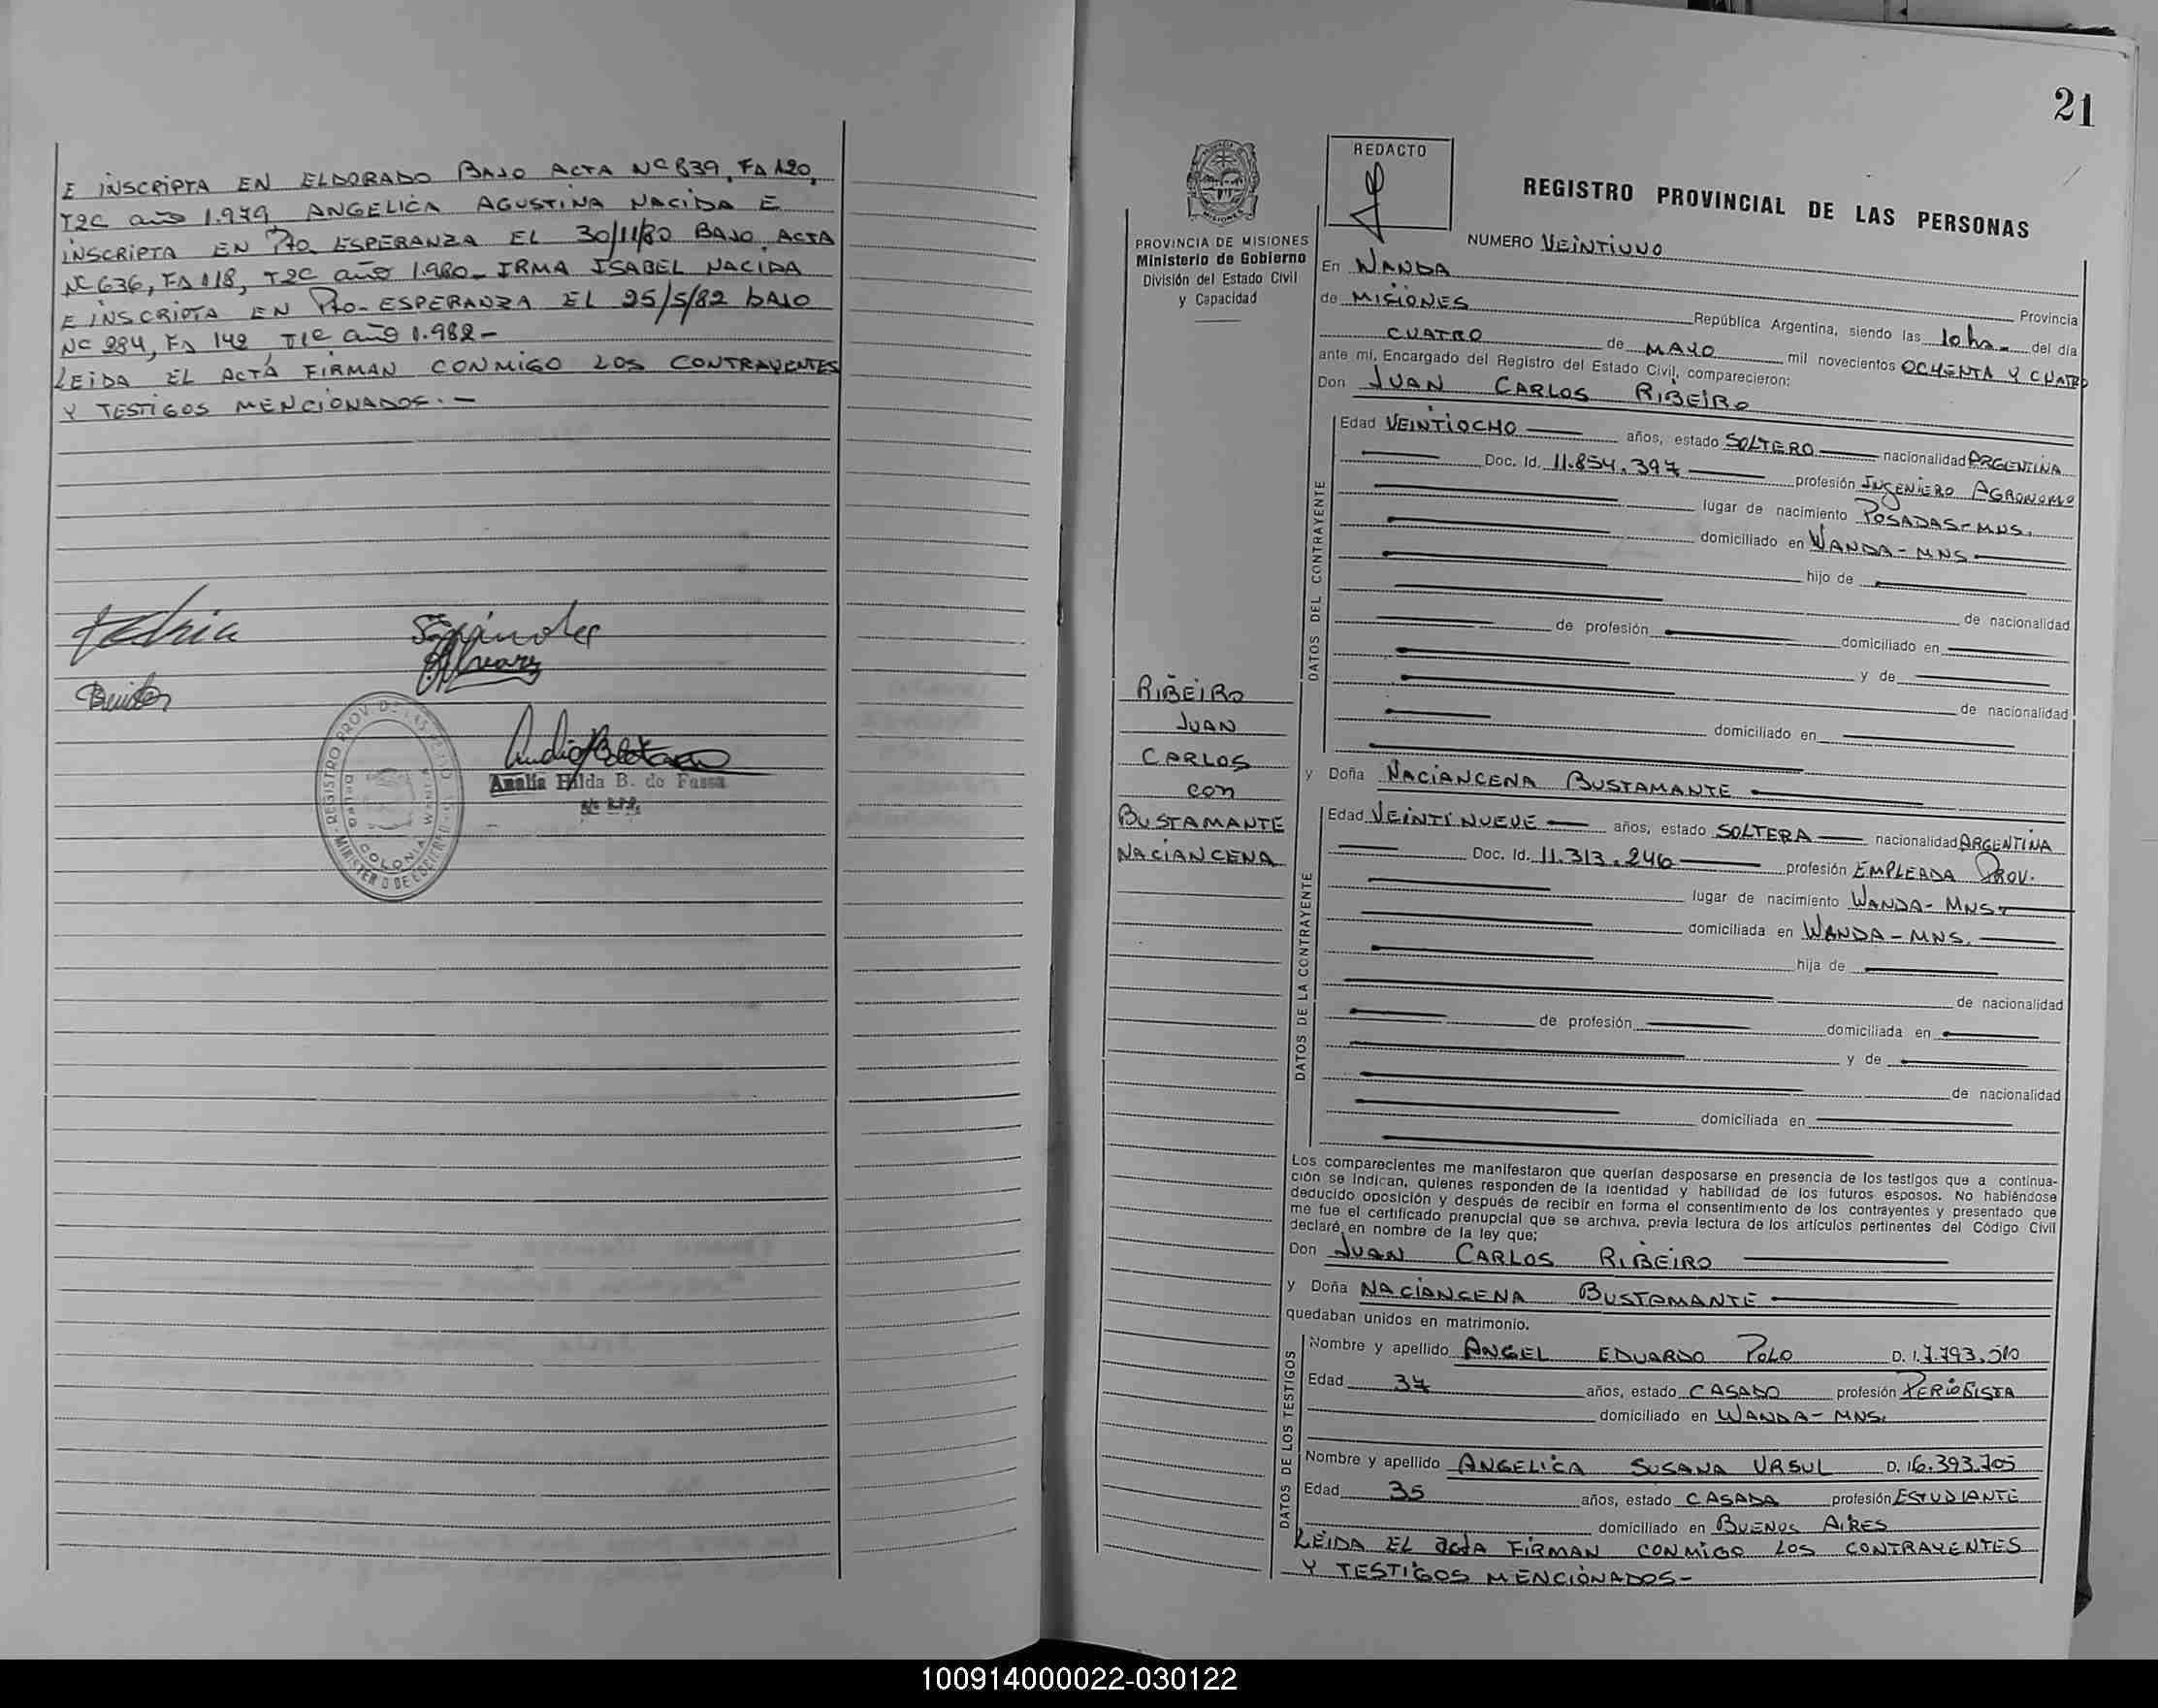 E INSCRIPTA EN ELDORADO BAJO ACTA Nº 839, Fº 120,
T2º año 1.979 ANGELICA AGUSTINA NACIDA E
INSCRIPTA EN Pto. ESPERANZA EL 30/11/80 BAJO ACTA
Nº 636, Fº 118, T2º año 1.980_ IRMA ISABEL NACIDA
E INSCRIPTA EN Pto- ESPERANZA EL 25/5/82 bajo
Nº 284, Fº 142 T1º año 1.982-
LEIDA EL ACTA FIRMAN CONMIGO LOS CONTRAYENTES
Y TESTIGOS MENCIONADOS.-
REGISTRO PROV. DE LAS
MINISTERIO DE GOBIERNO
COLONIA WANDA
Amalia Hilda B. de Fassa
21
PROVINCIA DE MISIONES
Ministerio de Gobierno
División del Estado Civil
y Capacidad
REDACTO
REGISTRO PROVINCIAL DE LAS PERSONAS
NUMERO VEINTIUNO
En WANDA
Provincia
de MISIONES República Argentina, siendo las 10 hs- del día
CUATRO de MAYO mil novecientos OCHENTA Y CUATRO
ante mi, Encargado del Registro del Estado Civil, comparecieron:
Don JUAN CARLOS RIBEIRO
DATOS DEL CONTRAYENTE
Edad VEINTIOCHO años, estado SOLTERO nacionalidad ARGENTINA
Doc. Id. 11.854.397 profesión INGENIERO AGRONOMO
lugar de nacimiento POSADAS-MNS.
domiciliado en WANDA-MNS
hijo de
de nacionalidad
de profesión domiciliado en
y de
de nacionalidad
domiciliado en
RIBEIRO
JUAN
CARLOS
con
BUSTAMANTE
NACIANCENA
y Doña NACIANCENA BUSTAMANTE
DATOS DE LA CONTRAYENTE
Edad VEINTINUEVE años, estado SOLTERA nacionalidad ARGENTINA
Doc. Id. 11.313.246 profesión EMPLEADA PROV.
lugar de nacimiento WANDA-MNS-
domiciliada en WANDA-MNS.
hija de
de nacionalidad
de profesión domiciliada en
y de
de nacionalidad
domiciliada en
Los comparecientes me manifestaron que querían desposarse en presencia de los testigos que a continua-
ción se indican, quienes responden de la identidad y habilidad de los futuros esposos. No habiéndose
deducido oposición y después de recibir en forma el consentimiento de los contrayentes y presentado que
me fue el certificado prenupcial que se archiva, previa lectura de los artículos pertinentes del Código Civil
declaré en nombre de la ley que;
Don JUAN CARLOS RIBEIRO
y Doña NACIANCENA BUSTAMANTE
quedaban unidos en matrimonio.
DATOS DE LOS TESTIGOS
Nombre y apellido ANGEL EDUARDO POLO D. I. 7.793.510
Edad 37 años, estado CASADO profesión PERIODISTA
domiciliado en WANDA-MNS.
Nombre y apellido ANGELICA SUSANA URSUL D. 16.393.705
Edad 35 años, estado CASADA profesión ESTUDIANTE
domiciliado en BUENOS AIRES
LEIDA EL acta FIRMAN CONMIGO LOS CONTRAYENTES
Y TESTIGOS MENCIONADOS-
100914000022-030122